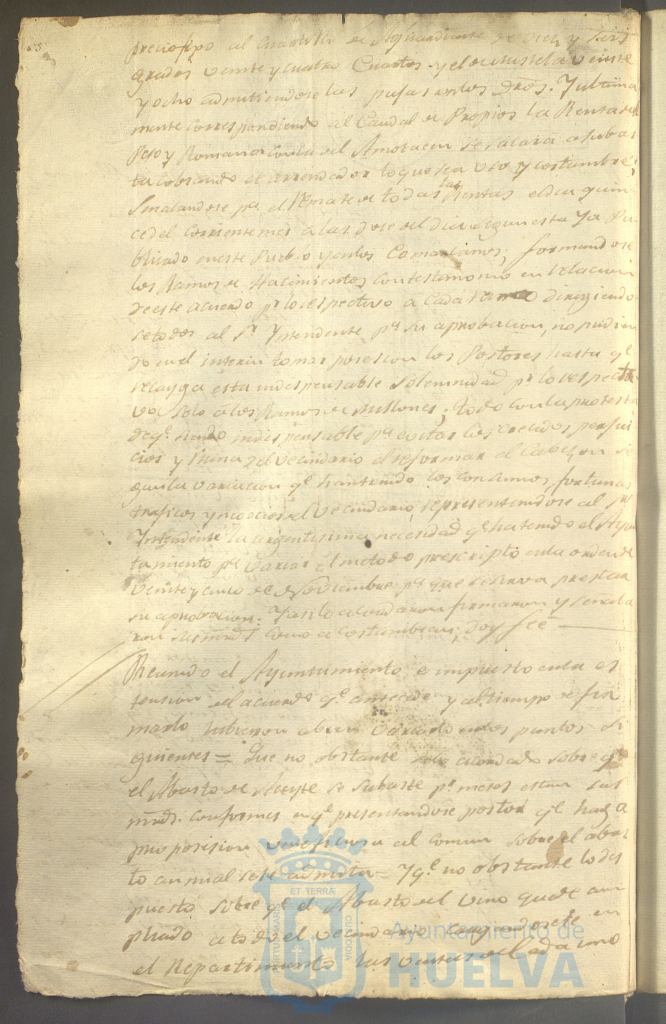 precio fixo al Quartillo de Aguardiente de Diez y seis
grados veinte y cuatro Cuartos y el de Mistela veinte
y ocho admitiendose las pujas dros. Y ultima
mente correspondiendo al Caudal de Propios la Renta de
Peso y Romana del Amotacen se sacará a subas
ta cobrando el arrendador lo que sea uso y costumbre
Señalandose pa. el Remate de todas las Rentas el dia quin
ce del corriente mes a las doce del dia segun esta ya Pu
blicado en este Pueblo y en los Comarcanos, formandose
los Ramos de Hacimientos con testimonio en relacion
de este acuerdo pr. lo respectivo a cada ramo dirigiendo
se todos al Sr. Yntendente pa. su aprobacion, no pudien
do en el interin tomar posesion los Postores hasta qe.
recayga esta indispensable solemnidad pr. lo respecti
vo solo a los Ramos de Millones, todo con la protesta
de qe. siendo indispensable pa. evitar los crecidos perjui
cios y ruina del vecindario el reformar el Cabezon
variacion qe. han tenido los consumos, fortunas
traficos y negocios el vecindario, representandose al Sr.
Yntendente la urgentisima necesidad qe. ha tenido el Ayun
tamiento pa. variar el metodo prescripto en la orden de
veinte y cinco de Noviembre pa. que se sirva prestar
su aprobacion. Y asi lo acordaron firmaron y señala
ron sus mrds. como acostumbran, doy fee
Reunido el Ayuntamiento e impuesto en la es
tension del acuerdo qe. antecede y al tiempo de fir
marlo tubieron a bien variarlo en los puntos si
guientes = Que no obstante lo acordado sobre qe.
el Abasto de Aceyte se subaste pr. meses estan sus
mrds. conformes en qe. presentandose postor qe. haga
proposicion beneficiosa al comun sobre el abas
to anual se le admita = Y qe. no obstante lo dis
puesto sobre qe. el Abasto del vino quede am
pliado a todo el vecindario cargandosele en
el Repartimiento las ventas de cada uno
ET TERRÆ
Ayuntamiento de
HUELVA